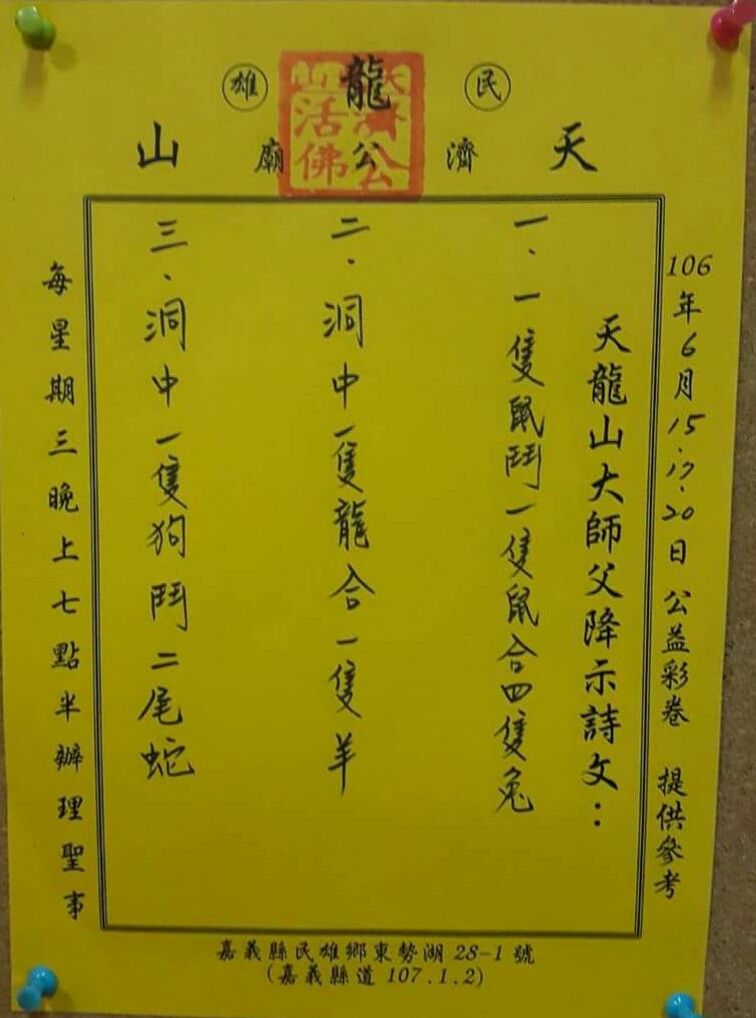 民雄
天龍山
濟公廟
天山濟公活佛
106年6月15.17.20日 公益彩卷 提供參考
天龍山大師父降示詩文：
一．一隻鼠鬥一隻鼠合四隻兔
二．洞中一隻龍合一隻羊
三．洞中一隻狗鬥二尾蛇
每星期三晚上七點半辦理聖事
嘉義縣民雄鄉東勢湖28-1號
(嘉義縣道107.1.2)